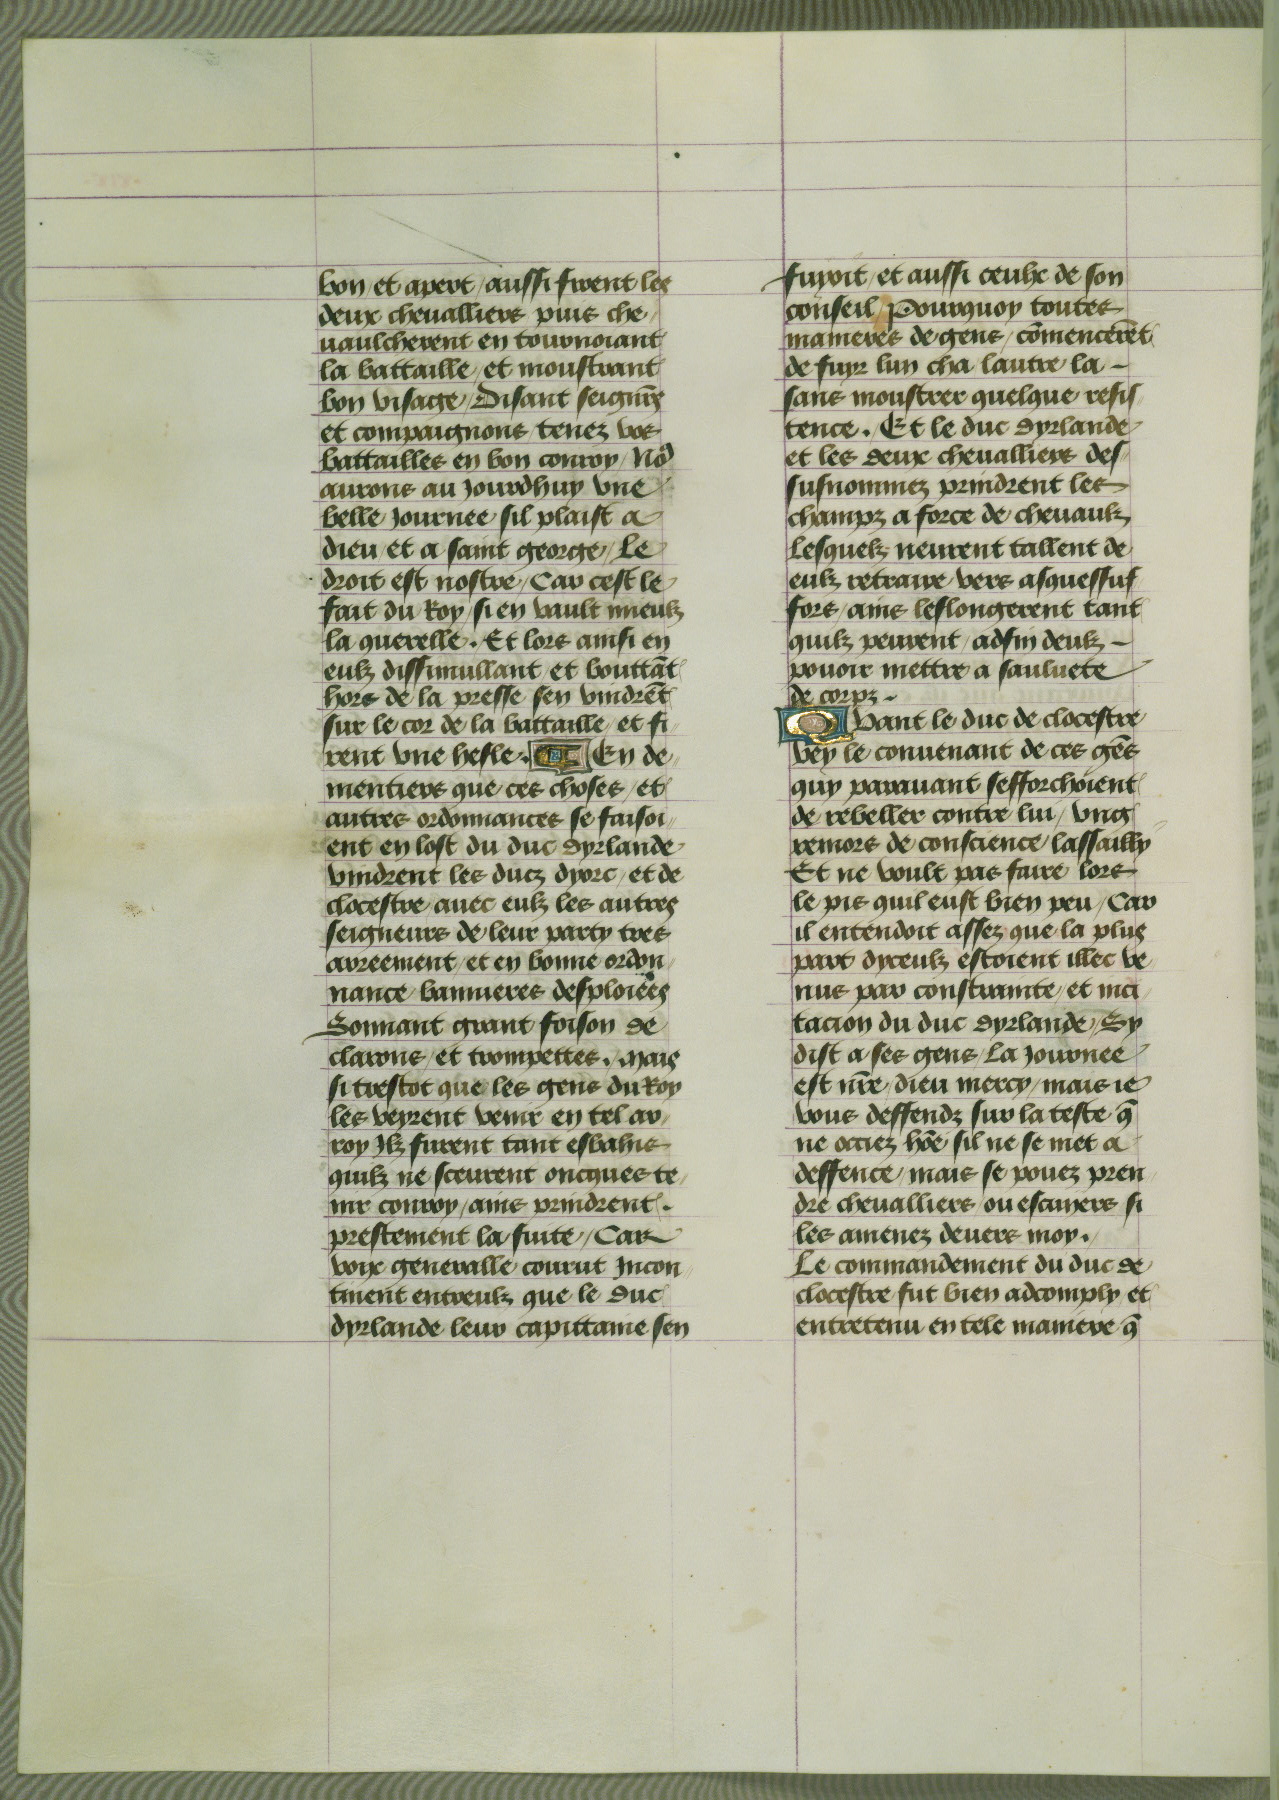 bon et apert / aussi firent les
deux chevalliers puis che¬
vaulcherent en tournoiant
la battaille / et moustrant
bon visage / Disant seignrs̄
et compaignons tenez vos
battailles en bon conroy / Noꝰ
aurons au Jourdhuy vne
belle Journee sil plaist a
dieu / et a saint george / Le
droit est nostre / Car cest le
fait du Roy / si en vault mieulz
la querelle . Et lors ainsi en
eulz dissimullant et bouttāt
hors de la presse sen vindrēt
sur le cor de la battaille / et fi¬
rent vne hesle . En de¬
mentiers que ces choses / et
autres ordonnances se faisoi¬
ent en lost du duc dyrlande
vindrent les ducz dyorc / et de
clocestre / avec eulz les autres
seigneurs de leur party tres
arreement / et en bonne ordon¬
nance bannieres desploiées
Sonnant grant foison de
clarons / et trompettes . Mais
si trestot que les gens du Roy
les veyrent venir en tel ar¬
roy Jlz furent tant esbahis
quilz ne sceurent oncques te¬
nir conroy / ains prindrent .
prestement la fuite / Car
voix generalle courut Incon¬
tinent entreulz que le duc
dyrlande leur capittaine sen
fuyoit / et aussi ceulx de son
conseil / Pourquoy toutes
manieres de gens / cōmencerēt
de fuyr lun cha lautre la -
sans moustrer quelque resis¬
tence . Et le duc dyrlande
et les deux chevalliers des¬
susnommez prindrent les
champz a force de chevaulz
Lesquelz neurent tallent de
eulz retraire vers asquessuf¬
fors / ains leslongerent tant
quilz peurent / adfin deulz -
pouoir mettre a sauluete
de corpz -
Quant le duc de clocestre
vey le convenant de ces gēs
quy paravant sefforchoient
de rebeller contre lui / vng
remors de conscience lassailly
Et ne voult pas faire lors
le pis quil eust bien peu / Car
il entendoit assez que la plus
part dyceulz estoient illec ve¬
nus par constrainte / et inci¬
tacion du duc dyrlande / Sy
dist a ses gens / La Journee
est nr̄e / dieu mercy / mais ie
vous deffendz sur la teste q̄
ne occiez hōe / sil ne se met a
deffence / mais se pouez pren¬
dre chevalliers ou escuyers si
les amenez devers moy .
Le commandement du duc de
clocestre fut bien adcomply et
entretenu en tele maniere q̄